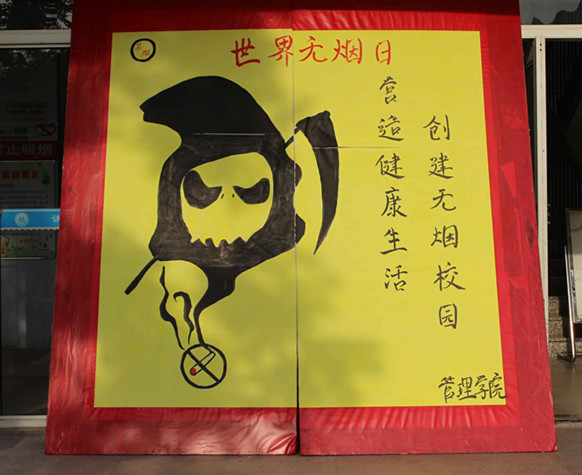 世界无烟日
创建无烟校园
营造健康生活
管理学院
禁止吸烟